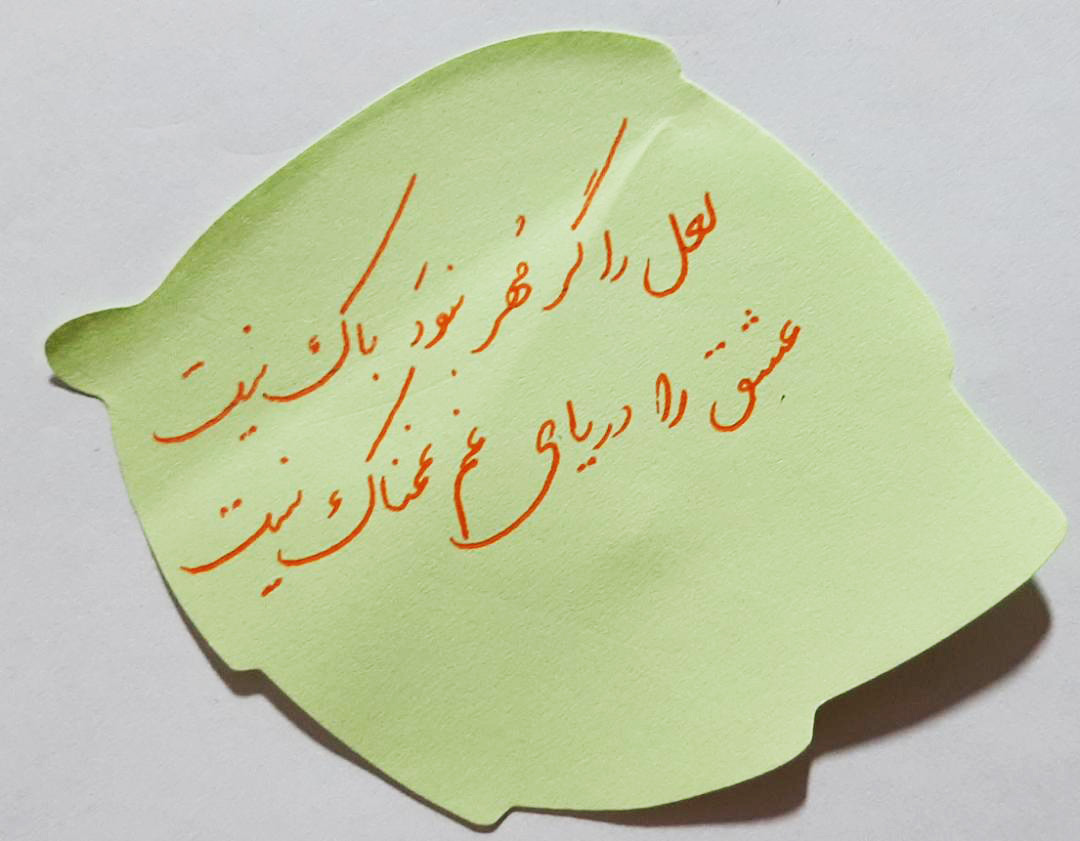 لعل را گر مُهر نبوَد باک نیست
عشق را دریای غم غمناک نیست